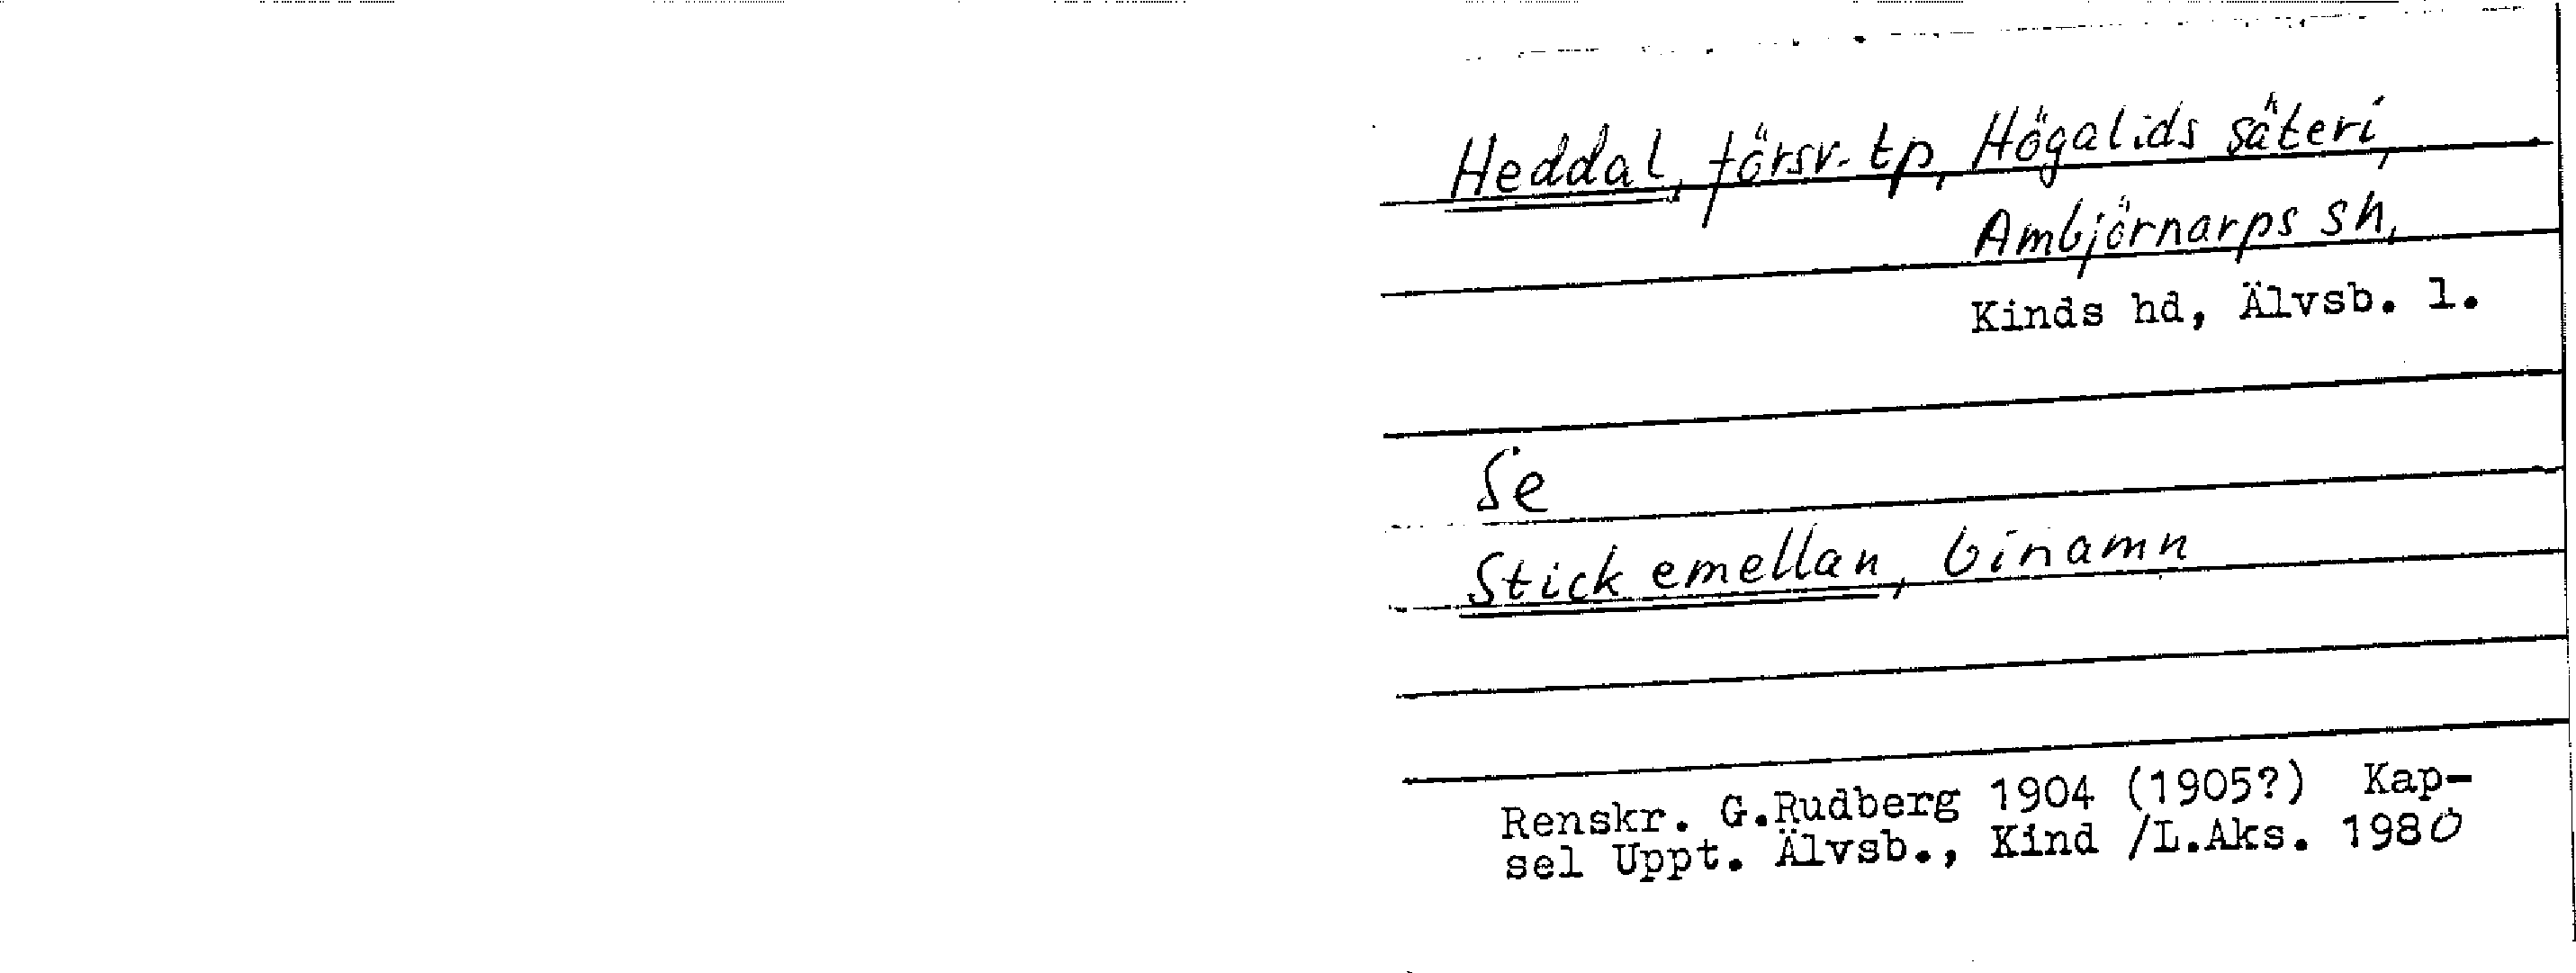 Heddal, försv. tp, Högalids säteri,
Ambjörnarps sn,
Kinds hd, Älvsb. l.
Se
Stick emellan, binamn
Renskr. G.Rudberg 1904 (1905?) Kap-
sel Uppt. Älvsb., Kind /L.Aks. 1980